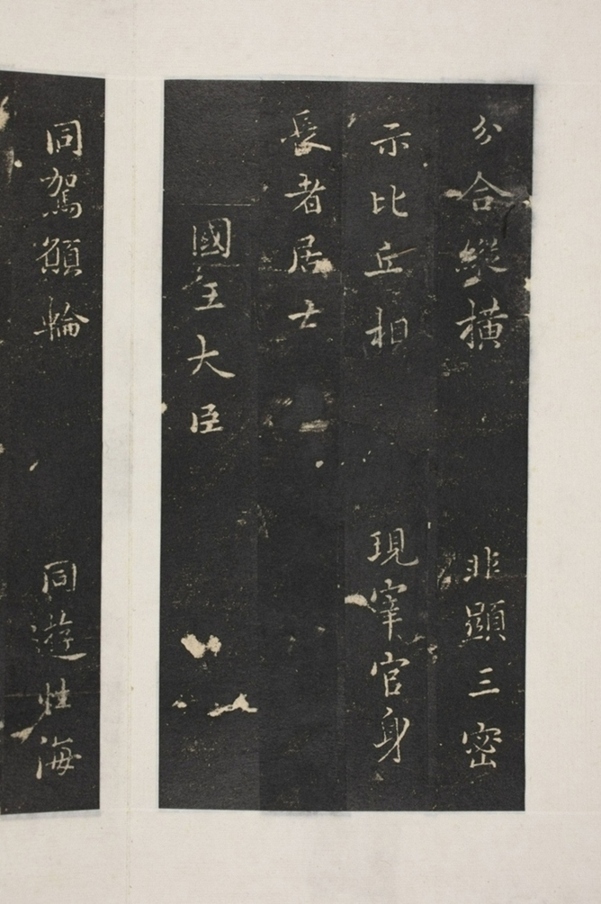 分合縱横 非顯三密
示比丘相 現宰官身
長者居士
國王大臣
同駕願輪 同遊性海